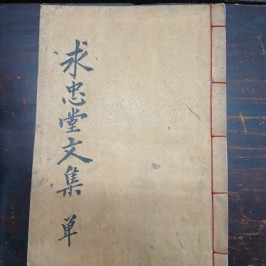 求忠堂文集 单